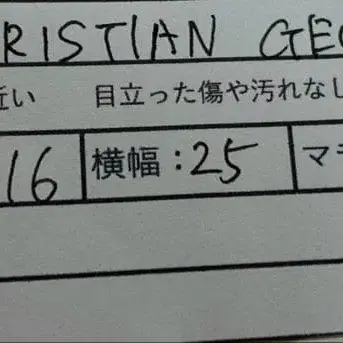 RISTIAN GEO
近い 目立った傷や汚れなし
16 横幅:25 マチ